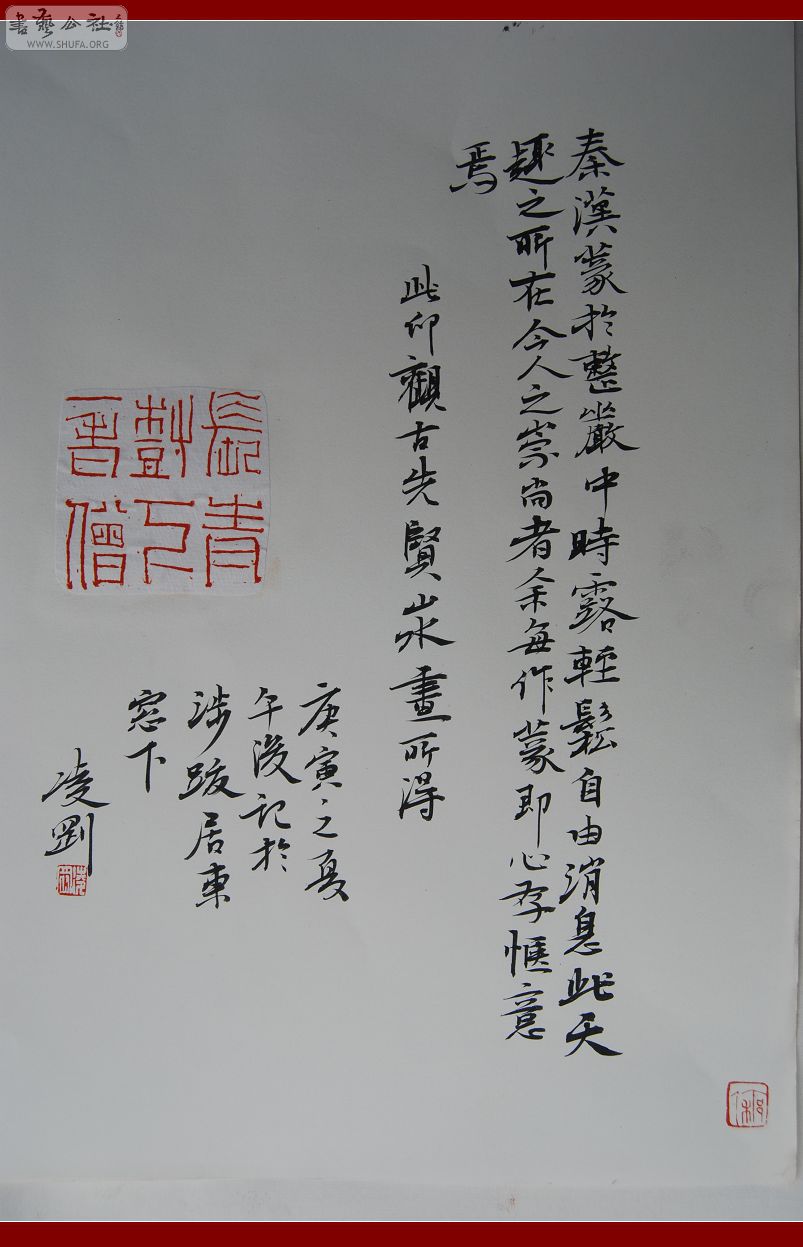 書藝公社
WWW.SHUFA.ORG
秦漢篆於整嚴中時露輕鬆自由消息此天
趣之所在今人之崇尚者余每作篆即心存愜意
焉
此仰觀古先賢山水畫所得
庚寅之夏
午後記於
涉跋居東
窓下
凌剛